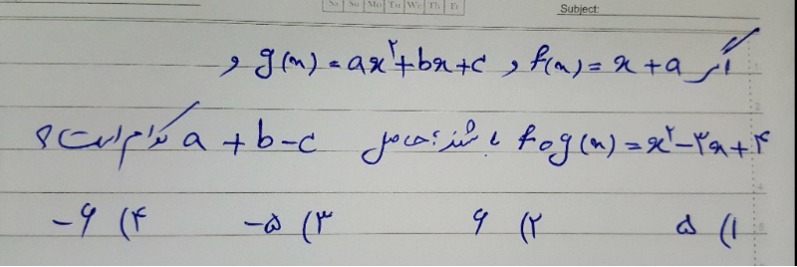 Sa Su Mo Tu We Th Fr
Subject:
اگر f(x) = x + a و g(x) = ax² + bx + c و
fog(x) = x² - ۳x + ۴ باشند؛ حاصل a + b - c کدام است؟
۱) ۵ ۲) ۶ ۳) -۵ ۴) -۶